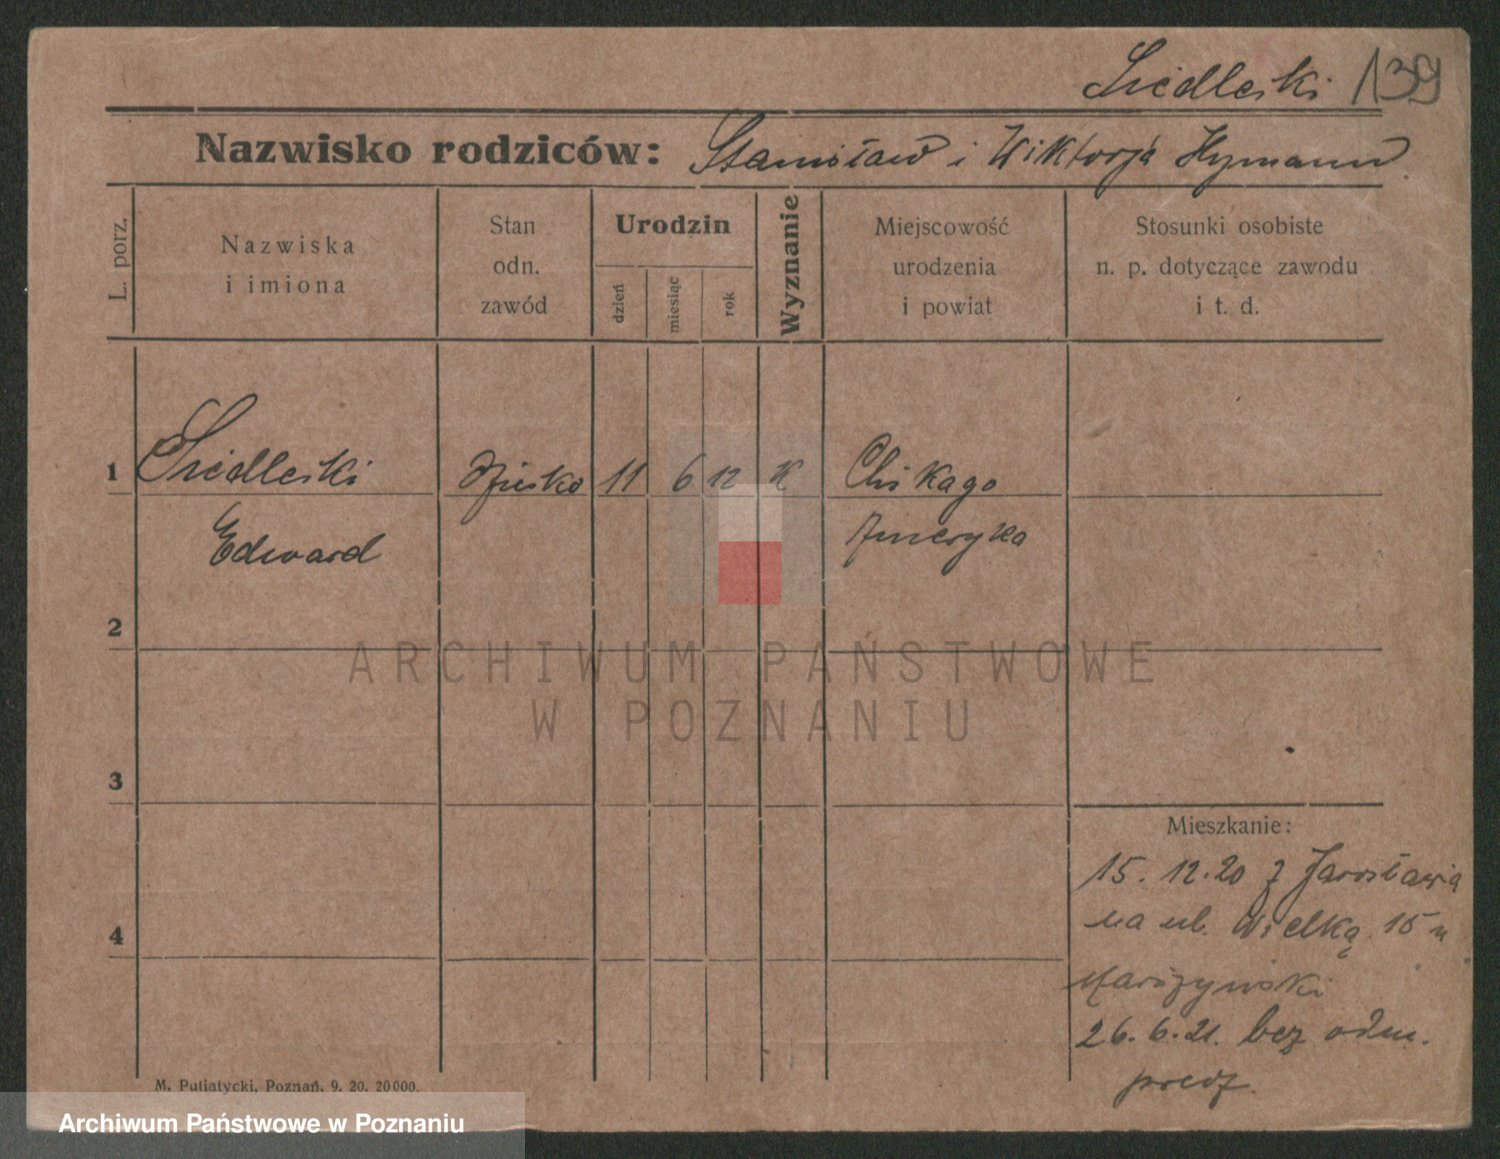 Siedlecki 139
Nazwisko rodziców: Stanisław i Wiktorja Hymann
L. porz.
Nazwiska
i imiona
Stan
odn.
zawód
Urodzin
dzień
miesiąc
rok
Wyznanie
Miejscowość
urodzenia
i powiat
Stosunki osobiste
n. p. dotyczące zawodu
i t. d.
1 Siedlecki 11 6 12 K Chikago
Edward Ameryka
2
ARCHIWUM PAŃSTWOWE
W POZNANIU
3
Mieszkanie:
15.12.20 z Jarosławia
4 na ul. Wielką 15 u
26.6.21. bez odm.
M. Putiatycki, Poznań. 9. 20. 20000.
Archiwum Państwowe w Poznaniu